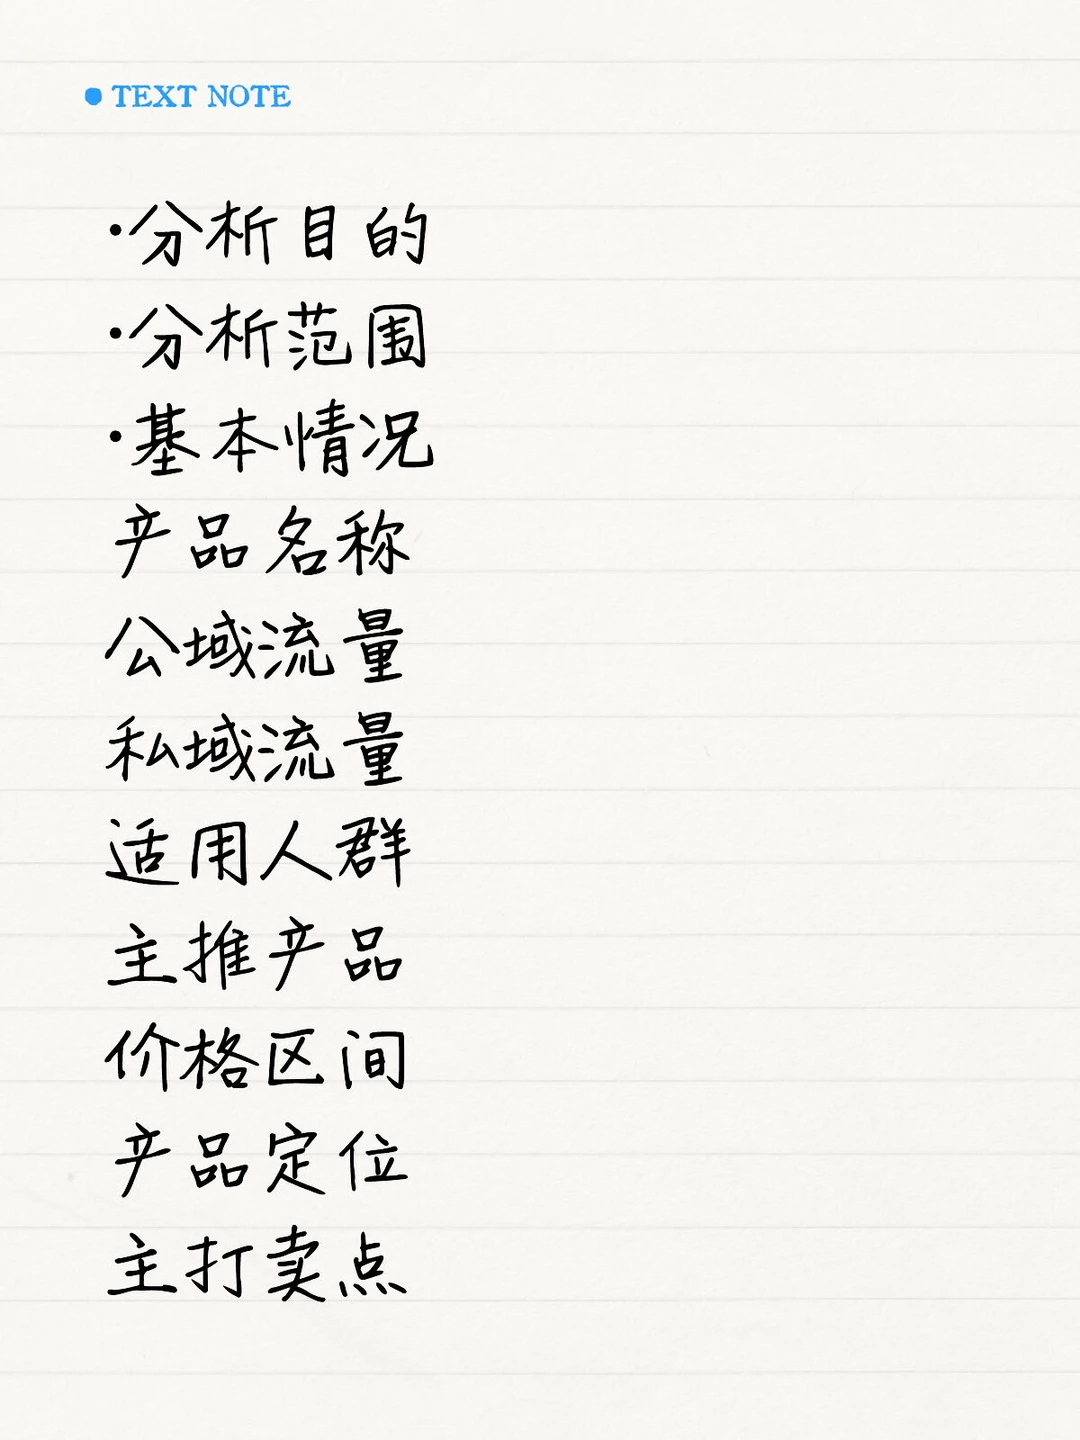 ● TEXT NOTE
·分析目的
·分析范围
·基本情况
产品名称
公域流量
私域流量
适用人群
主推产品
价格区间
产品定位
主打卖点